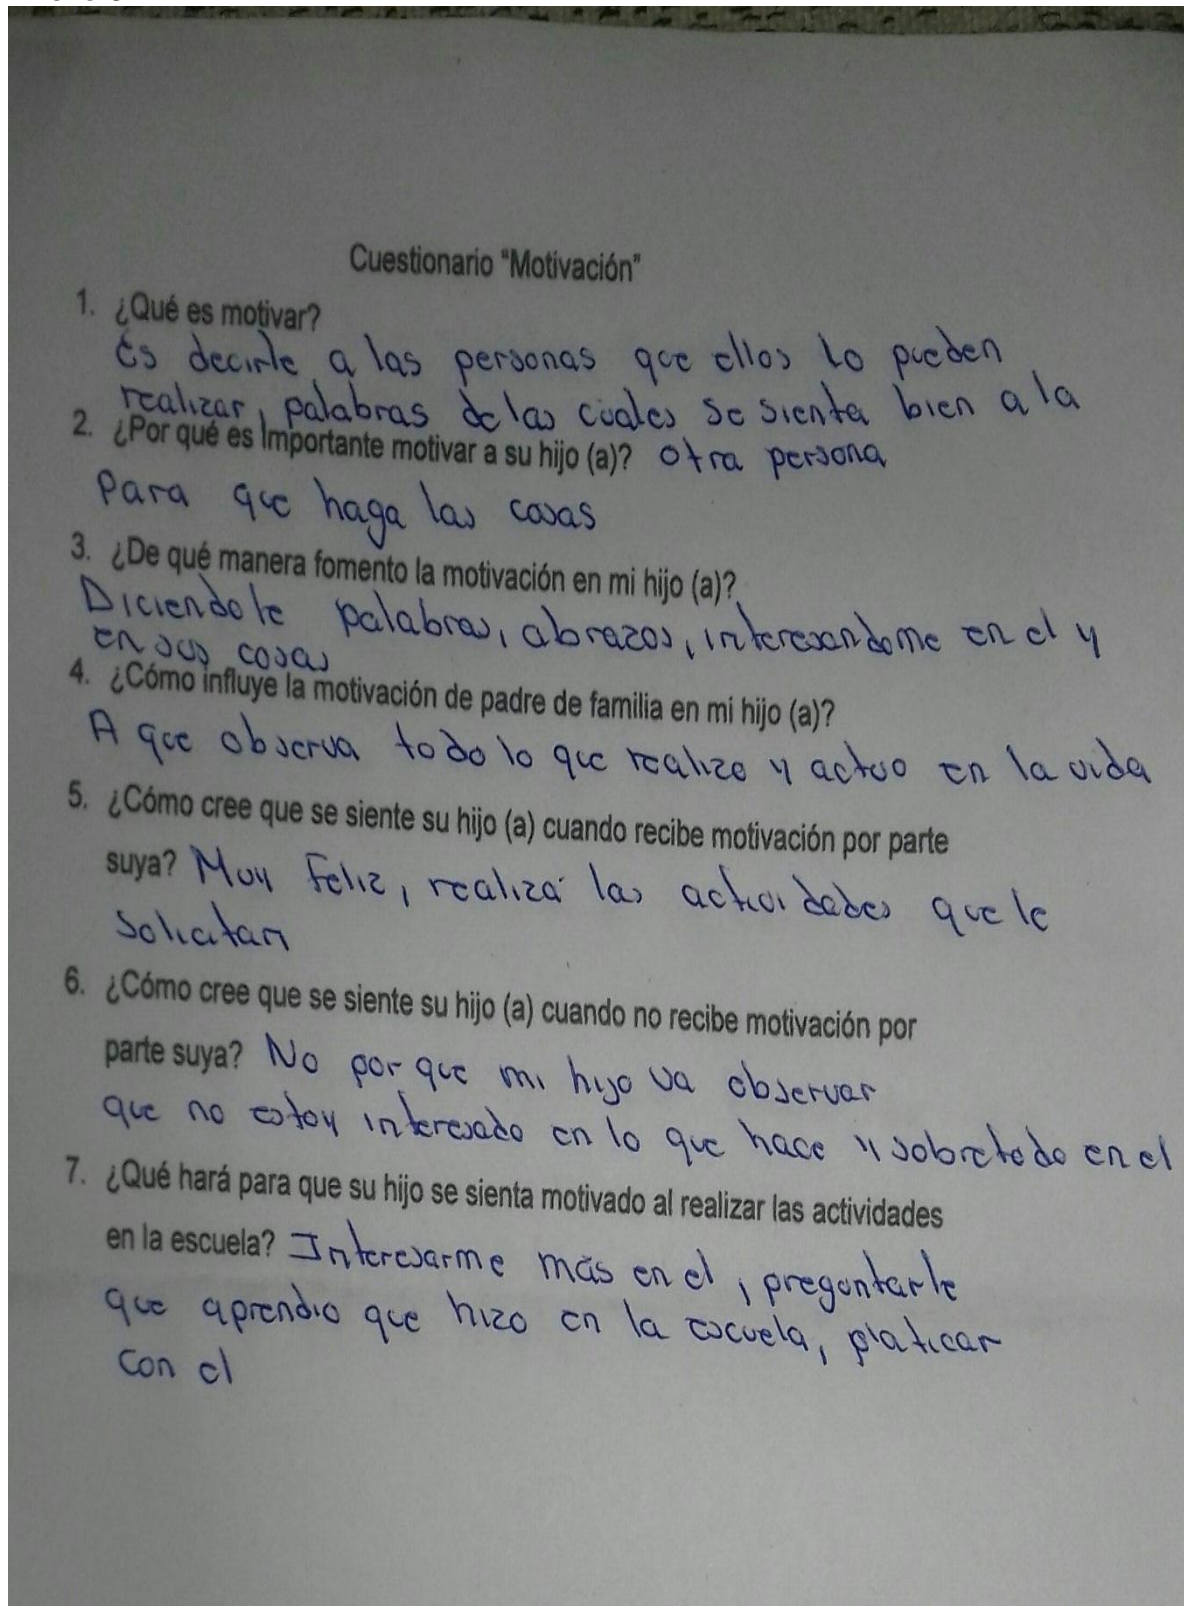 Cuestionario "Motivación"
1. ¿Qué es motivar?
Es decirle a las personas que ellos lo pueden
realizar, palabras de las cuales se sienta bien a la
2. ¿Por qué es Importante motivar a su hijo (a)? otra persona
Para que haga las cosas
3. ¿De qué manera fomento la motivación en mi hijo (a)?
Diciendole palabras, abrazos, interesandome en el y
en sus cosas
4. ¿Cómo influye la motivación de padre de familia en mi hijo (a)?
A que observa todo lo que realizo y actuo en la vida
5. ¿Cómo cree que se siente su hijo (a) cuando recibe motivación por parte
suya? Muy Feliz, realiza las actividades que le
solicitan
6. ¿Cómo cree que se siente su hijo (a) cuando no recibe motivación por
parte suya? No por que mi hijo va observar
que no estoy interesado en lo que hace y sobretodo en el
7. ¿Qué hará para que su hijo se sienta motivado al realizar las actividades
en la escuela? Interesarme más en el, preguntarle
que aprendio que hizo en la escuela, platicar
con el